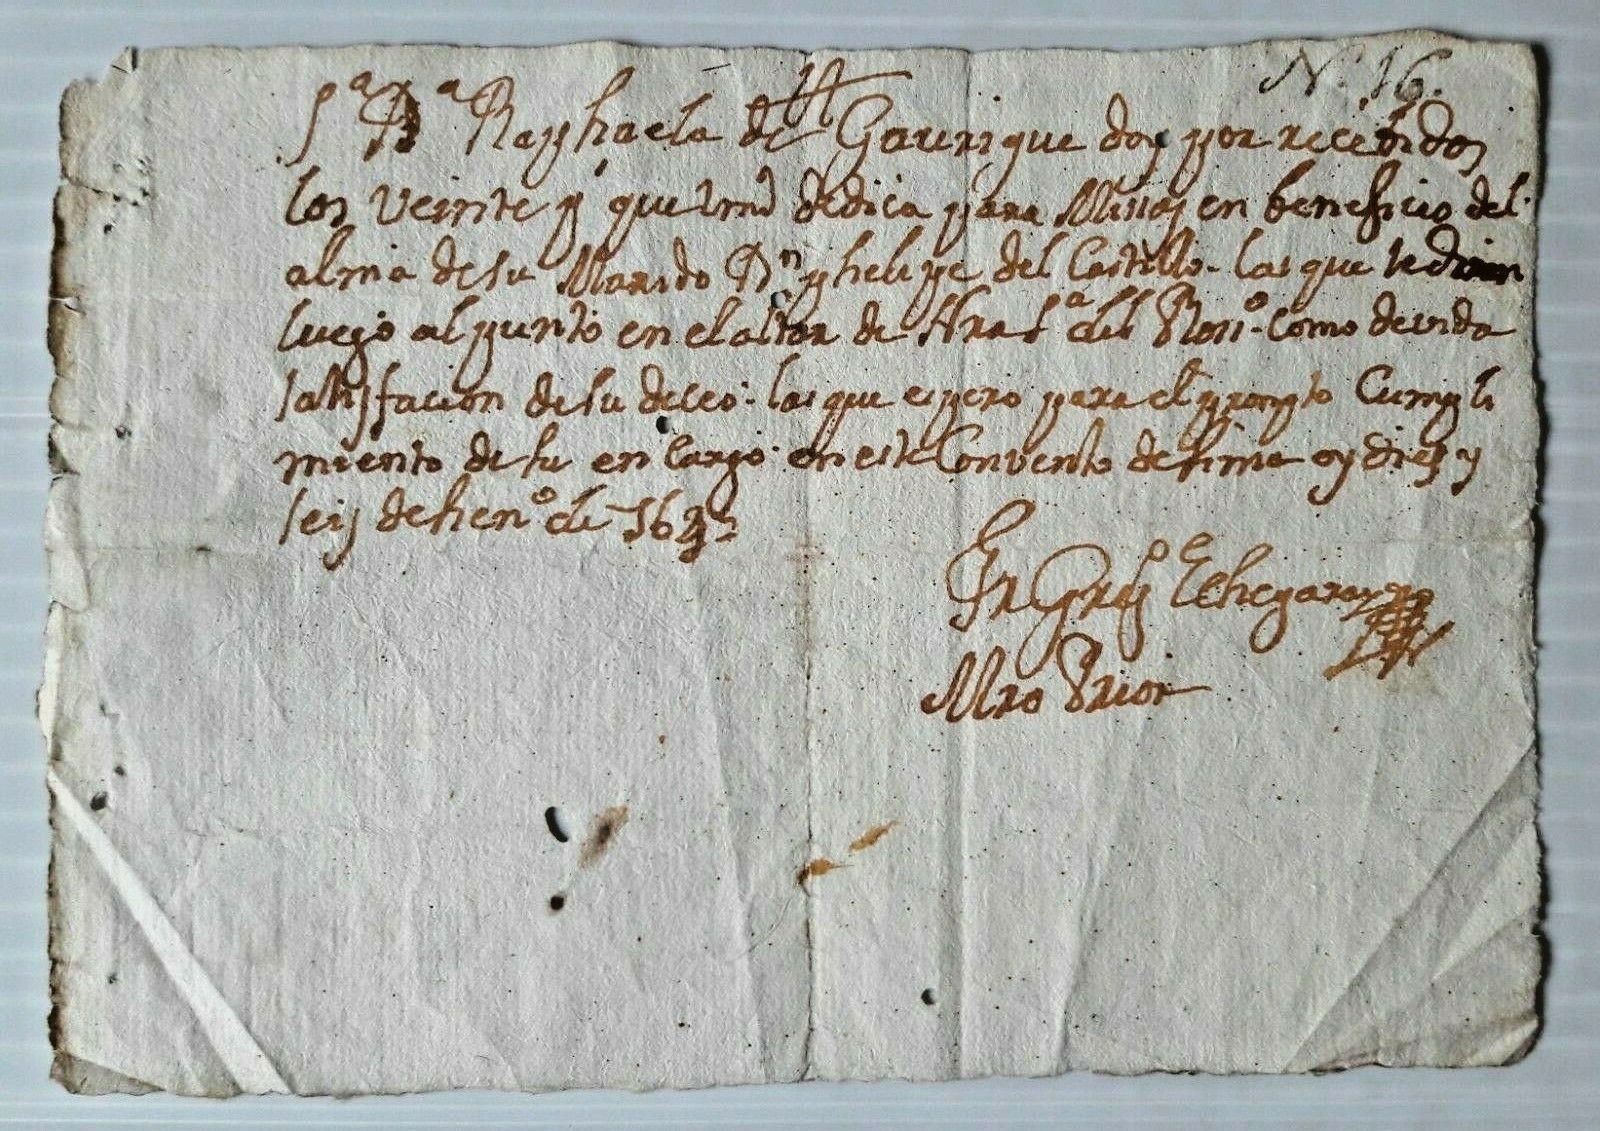 N. 16.
S.ª D.ª Rayhaela de Gaurrigue doy por recebidos
los veinte y que Vmd dedica para Missas en beneficio del
alma de su Marido D.n phelipe del Castillo. las que se diran
luego al punto en el altar de Nra S.ª del Ros.º como devida
satisfacion de su deceo. las que espero para el prompto Cumpli
miento de su encargo. en este Convento de Lima oy dies y
seis de hen.º de
Fr Echegaray
Mro Prior